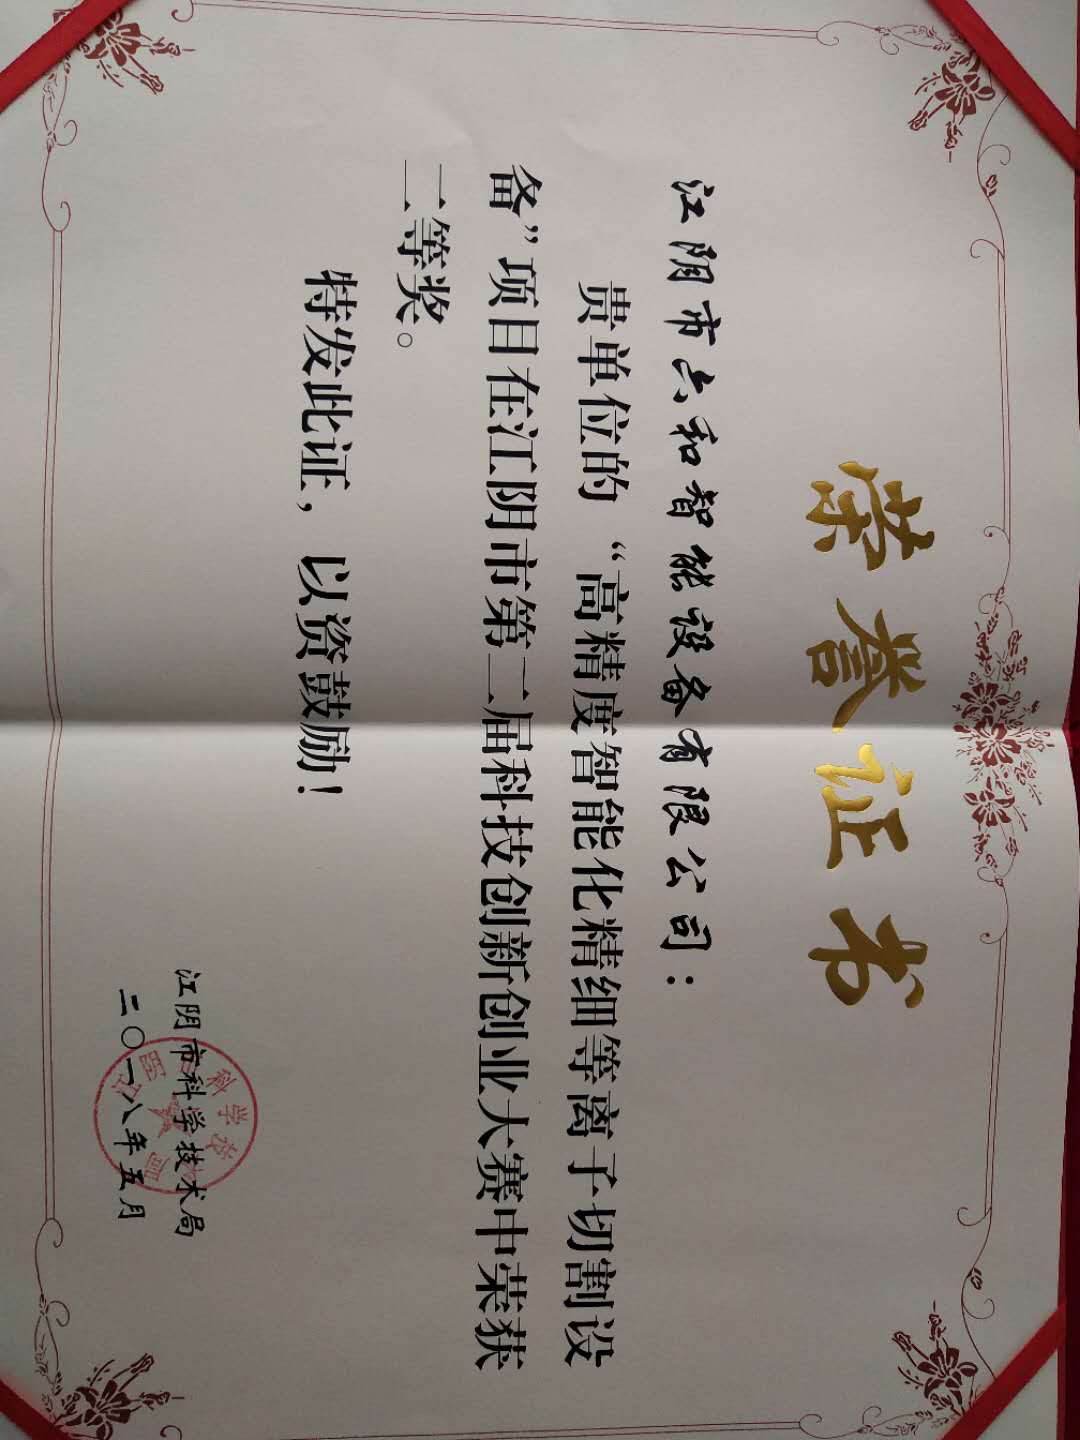 荣誉证书
江阴市六和智能设备有限公司：
贵单位的“高精度智能化精细等离子切割设
备”项目在江阴市第二届科技创新创业大赛中荣获
二等奖。
特发此证，以资鼓励！
江阴市科学技术局
二〇一八年五月